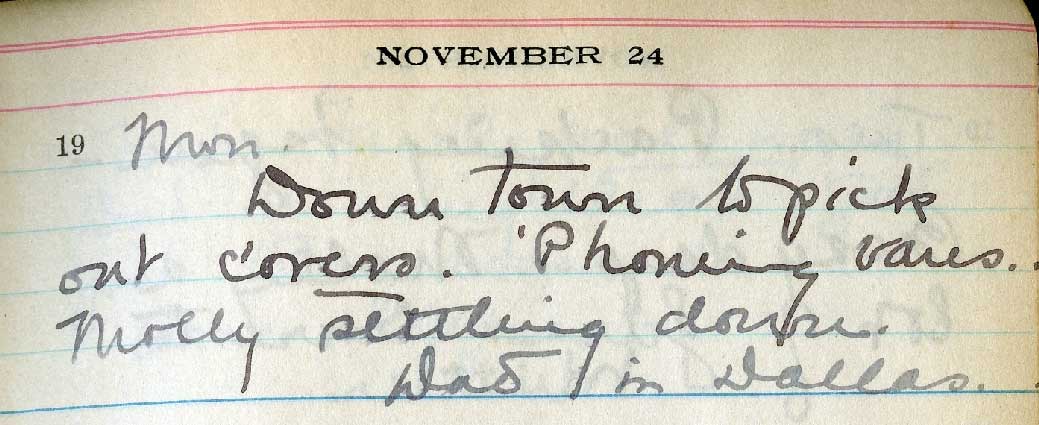 NOVEMBER 24
19 Mon.
Down town to pick
out covers. 'Phoning
Molly settling down.
Dad in Dallas.